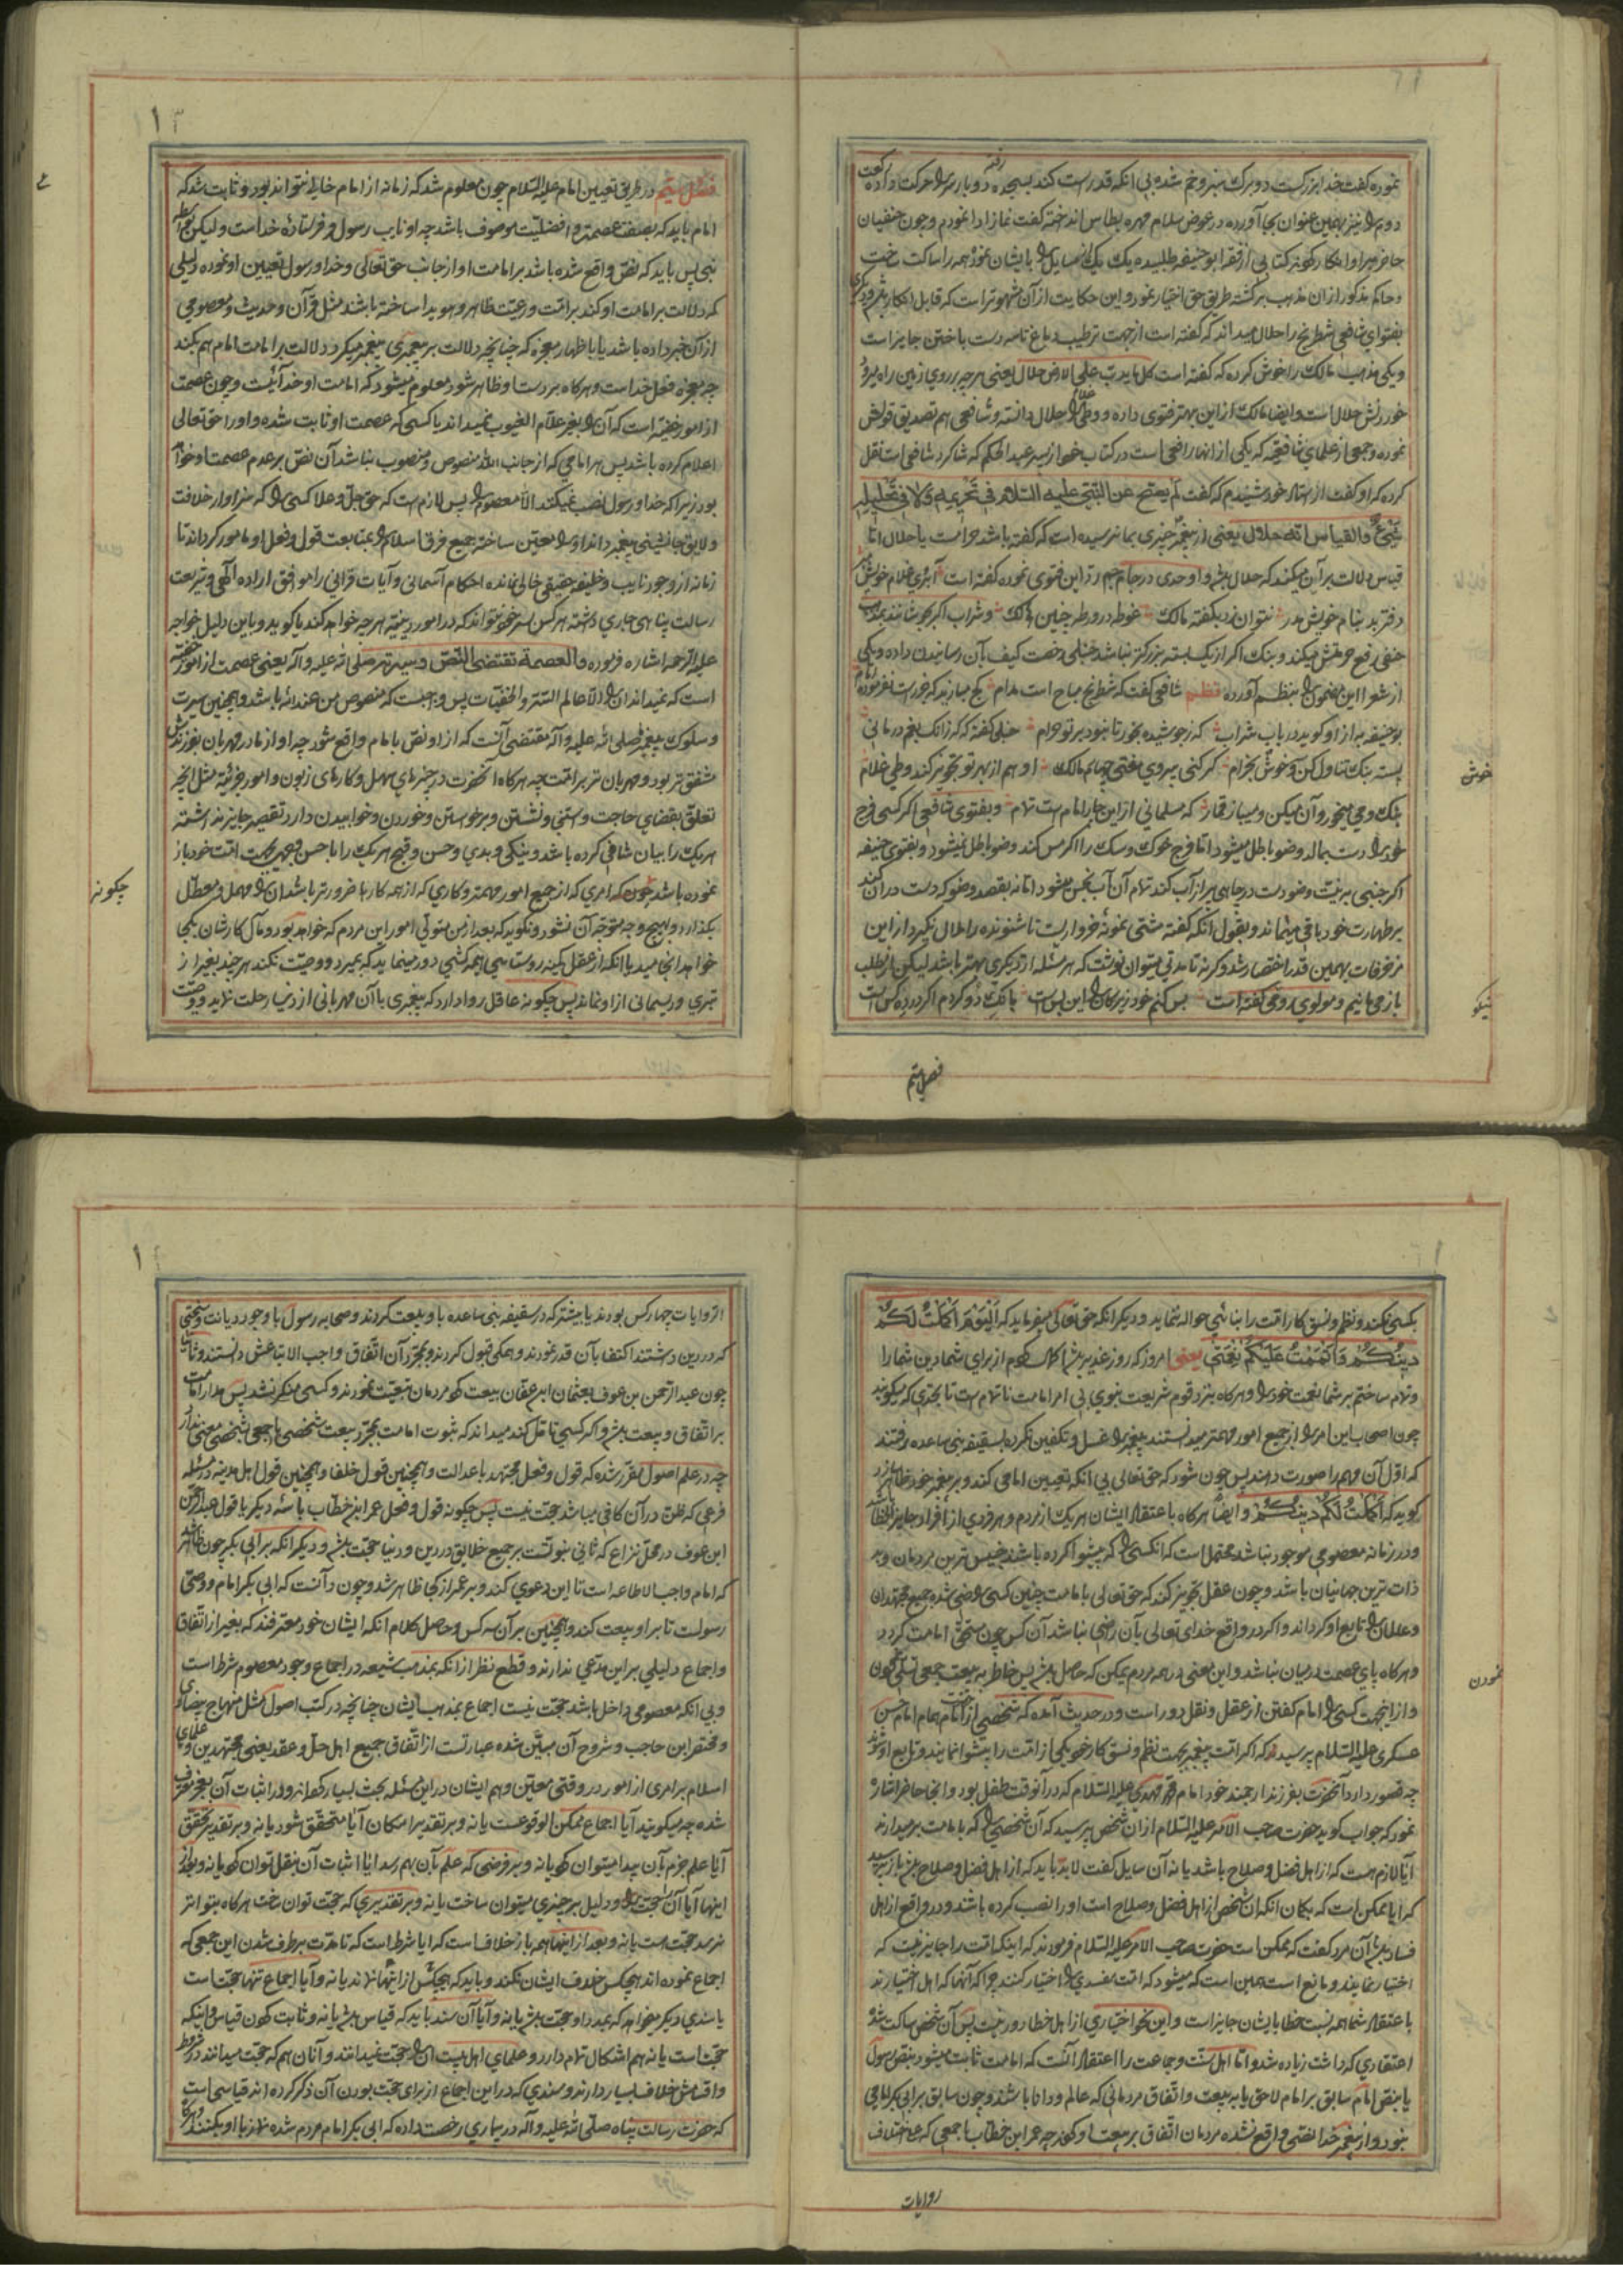 نموده گفت خدا بزرگست دو برگ سبز و خم شده بی انکه قدر راست کند بسجده رفته دو بار سر را حرکت داده رکعت
دوم را نیز بهمین عنوان بجا آورده در عوض سلام مهره بطاس انداخته گفت نماز ادا نمودم و چون حنفیان
حاضر بر او انکار کتابی از فقه ابو حنیفه طلبیده یک یک از مسایل را بایشان نموده همه را ساکت ساخت
و حاکم مذکور از ان مذهب برگشته طریق حق اختیار نمود و این حکایت از آن مشهورتر است که قابل انکار باشد و دیگری
بفتوای شافعی شطرنج را حلال میداند که گفته است از جهت ترطیب دماغ تا سه دست باختن جایز است
و یکی مذهب مالک را خوش کرده که گفته است کل ما یدب علی الارض حلال یعنی هر چه بر روی زمین راه میرود
خوردنش حلال است و ایضا مالک از این بهتر فتوی داده و وطی غلام را حلال دانسته و شافعی هم تصدیق قولش
نموده و جمعی از علمای شافعیه که یکی از انها رافعی است در کتاب خود از پسر عبد الحکم که شاکرد شافعی است نقل
کرده که او گفت از استاد خود شنیدم که گفت لم یصح عن النبی علیه السلام فی تحریمه و لا فی تحلیله
شیئ و القیاس انه حلال یعنی از پیغمبر چیزی بما نرسیده است که گفته باشد حرامست یا حلال اما
قیاس دلالت بر آن میکند که حلال باشد و اوحدی در جام جم رد این فتوی نموده گفته است آبروی غلام خویش
دفتر بد بنام خویش مدر نتوان زد بگفته مالک غوطه در ورطه چنین هالک و شراب اگر جوشانند بمذهب
حنفی رفع حرمتش میکند و بنک اکر از یک پسته بزرکتر نباشد حنبلی رخصت کیف بآن رسانیدن داده و یکی
از شعرا این مضمون را بنظم آورده نظم شافعی گفت که شطرنج مباح است مدام کج مبازید که جز راست نفرموده امام
بو حنیفه به از او کوید در باب شراب که ز جوشیده بخور تا نبود بر تو حرام حنبلی گفته که کر زانک بغم در مانی
پسته بنک تناول کن و خوش بخرام گر کنی پیروی مفتی چهارم مالک او هم از بهر تو تجویز کند وطی غلام
بنک و می میخور و آن میکن و میباز قمار که مسلمانی از این چار امام است تمام و بفتوی شافعی اکر کسی فرج
خود را دست بمالد وضو باطل میشود اما فرج خوک و سک را اکر مس کند وضو باطل نمیشود و بفتوی حنیفه
اکر جنبی به نیت وضو دست در چاهی پر از آب کند تمام آن آب نجس میشود اما نه بقصد وضو که دست در ان کند
بر طهارت خود باقی میماند و بقول انکه گفته مشتی نمونه خرواریست تا شنونده را ملال نکیرد از این
مزخرفات بهمین قدر اختصار شد و کر نه تا مدتی میتوان نوشت که هر مسئله از دیکری بهتر باشد لیکن از مطلب
باز می مانیم و مولوی رومی گفته است بس کنم خود زیرکان را این بس است بانک دو کردم اکر در ده کس است
خوش
نیکو
فصل ستم
فصل ستم در طریق تعیین امام علیه السلام چون معلوم شد که زمانه از امام خالی نتواند بود و ثابت شد که
امام باید که بصفت عصمت و افضلیت موصوف باشد چه او نایب رسول و فرستاده خداست و لیکن بواسطه
نبی پس باید که نص واقع شده باشد بر امامت او از جانب حق تعالی و خدا و رسول تعیین او نموده دلیلی
که دلالت بر امامت او کند بر امت و رعیت ظاهر و هویدا ساخته باشند مثل قرآن و حدیث و معصومی
از آن خبر داده باشد یا باظهار معجزه که چنانچه دلالت بر پیغمبری پیغمبر میکرد دلالت بر امامت امام هم بکند
چه معجزه فعل خداست و هرکاه بر دست او ظاهر شود معلوم میشود که امامت او خدآئیست و چون عصمت
از امور خفیه است که آن را بغیر علّام الغیوب نمیداند یا کسی که عصمت او ثابت شده و او را حق تعالی
اعلام کرده باشد پس هر امامی که از جانب الله منصوص و منصوب نباشد آن نص بر عدم عصمت او خواهد
بود زیرا که خدا و رسول نصب نمیکند الا معصوم را پس لازم است که حق جلّ و علا کسی را که سزاوار خلافت
و لایق جانشینی پیغمبر داند او را معین ساخته جمیع فرق اسلام را بمتابعت قول و فعل او مامور کرداند تا
زمانه از وجود نایب و خلیفه حقیقی خالی نمانده احکام آسمانی و آیات قرآنی را موافق اراده الهی و شریعت
رسالت پناهی جاری داشته هر کس بسر خود نتواند که در امور دینیه هر چه خواهد کند یا کوید و باین دلیل خواجه
علیه الرحمه اشاره فرموده و العصمة تقتضی النص و سیرته صلی الله علیه و آله یعنی عصمت از امور خفیه
است که نمیداند آن را الا عالم السر و الخفیات پس واجبست که منصوص من عند الله باشد و همچنین سیرت
و سلوک پیغمبر صلی الله علیه و آله مقتضی آنست که از او نص بامام واقع شود چه او از مادر مهربان بفرزندش
مشفق تر بود و مهربان تر بر امت چه هرکاه آنحضرت در چیزهای سهل و کارهای زبون و امور جزئیه مثل انچه
تعلق بقضای حاجت و استنجا و نشستن و برخواستن و خوردن و خوابیدن دارد تقصیر جایز نداشته
هر یک را بیان شافی کرده باشد و نیکی و بدی و حسن و قبح هر یک را باحسن وجهی بجهت امت خود باز
نموده باشد چون که امری که از جمیع امور مهمتر و کاری که از همه کارها ضرورتر باشد ان را مهمل و معطل
بکذارد و بهیچ وجه متوجه آن نشود و نکوید که بعد از من متولی امور این مردم که خواهد بود و مآل کارشان بکجا
خواهد انجامید با انکه از عقل کمینه روستائی همه کسی دور مینماید که بمیرد و وصیت نکند هر چند بغیر از
تبری و ریسمانی از او نماند پس چکونه عاقل روا دارد که پیغمبری با آن مهربانی از دنیا رحلت نماید و وصیت
چکونه
بکسی نکند و نظم و نسق کار امت را بنائبی حواله ننماید و دیکر انکه حق تعالی میفرماید که الیوم اکملت لکم
دینکم و اتممت علیکم نعمتی یعنی امروز که روز غدیر باشد کامل کردم از برای شما دین شما را
و تمام ساختم بر شما نعمت خود را و هرکاه بنزد قوم شریعت نبوی بی امر امامت ناتمام است تا بحدی که میکویند
چون اصحاب این امر را از جمیع امور مهمتر میدانستند پیغمبر را غسل و تکفین نکرده بسقیفه بنی ساعده رفتند
که اول آن مهم را صورت دهند پس چون شود که حق تعالی بی انکه تعیین امامی کند و بر پیغمبر خود ظاهر سازد
کوید که اکملت لکم دینکم و ایضا هرکاه باعتقاد ایشان هر یک از مردم و هر فردی از افراد جایز الخطا باشد
و در زمانه معصومی موجود نباشد محتمل است که انکسی را که پیشوا کرده باشند خبیس ترین مردمان و بد
ذات ترین جهانیان باشد و چون عقل تجویز کند که حق تعالی بامامت چنین کسی راضی شده جمیع مجتهدان
و عالمان را تابع او کرداند و اکر در واقع خدای تعالی بآن راضی نباشد آن کس چون مستحق امامت کردد
و هرکاه پای عصمت در میان نباشد و این معنی در همه مردم یمکن که حاصل باشد پس خاطر به بیعت جمعی تسلی نمودن
و از اینجهت کسی را امام گفتن از عقل و نقل دور است و در حدیث آمده که شخصی از امام همام امام حسن
عسکری علیه السلام پرسید که اکر امت پیغمبر بجهت نظم و نسق کار خود یکی از امت را پیشوا نمایند و تابع او شوند
چه قصور دارد آنحضرت بفرزند ارجمند خود امام محمد مهدی علیه السلام که در آنوقت طفل بود و انجا حاضر اشاره
نمود که جواب کوید حضرت صاحب الامر علیه السلام از ان شخص پرسید که آن شخصی را که بامامت بر میدارند
آیا لازم هست که از اهل فضل و صلاح باشد یا نه آن سایل گفت لابد باید که از اهل فضل و صلاح باشد باز پرسید
که ایا ممکن است که بکمان انکه ان شخص از اهل فضل و صلاح است او را نصب کرده باشند و در واقع از اهل
فساد باشد آن مرد گفت که ممکن است حضرت صاحب الامر علیه السلام فرمودند که اینک امت را جایز نیست که
اختیار نمایند و مانع است همین است که میشود که امت مفسدی را اختیار کنند چرا که آنها که اهل اختیارند
باعتقاد شما همه نسبت خطا بایشان جایز است و این نحو اختیاری از اهل خطا دور نیست پس آن شخص ساکت شد و
اعتقادی که داشت زیاده شد و اما اهل سنت و جماعت را اعتقاد آنست که امامت ثابت میشود بنص رسول
یا بنص امام سابق بر امام لاحق یا به بیعت و اتفاق مردمانی که عالم و دانا باشند و چون سابق بر ابی بکر امامی
نبود و از پیغمبر خدا نصی واقع نشده مردمان اتفاق بر بیعت او کردند چه عمر ابن خطاب با جمعی که علی اختلاف
نمودن
روایات
الروایات چهار کس بودند یا بیشتر که در سقیفه بنی ساعده با او بیعت کردند و صحابه رسول با وجود دیانت و سختی
که در دین داشتند اکتفا بآن قدر نمودند و همکی قبول کردند و بمجرد آن اتفاق واجب الاتباعش دانستند و ثانیا
چون عبد الرحمن بن عوف بعثمان ابن عفان بیعت کرد مردمان تبعیت نمودند و کسی منکر نشد پس مدار امامت
بر اتفاق و بیعت باشد و اکر کسی تامل کند میداند که ثبوت امامت بمجرد بیعت شخصی یا جمعی بشخصی معنی ندارد
چه در علم اصول مقرر شده که قول و فعل مجتهد با عدالت و همچنین قول خلفا و همچنین قول اهل مدینه در مسئله
فرعی که ظن در آن کافی میباشد حجت نیست پس چکونه قول و فعل عمر ابن خطاب با سه دیکر یا قول عبد الرحمن
ابن عوف در محل نزاع که ثانی نبوتست بر جمیع خلایق در دین و دنیا حجت باشد و دیکر انکه بر ابی بکر چون ظاهر شد
که امام واجب الاطاعه است تا این دعوی کند و بر عمر از کجا ظاهر شد و چون دانست که ابی بکر امام و وصی
رسولست تا بر او بیعت کند و همچنین بر آن سه کس و حاصل کلام انکه ایشان خود معترفند که بغیر از اتفاق
و اجماع دلیلی بر این مدعی ندارند و قطع نظر از انکه بمذهب شیعه در اجماع وجود معصوم شرط است
و بی انکه معصومی داخل باشد حجت نیست اجماع بمذهب ایشان چنانچه در کتب اصول مثل منهاج بیضاوی
و مختصر ابن حاجب و شروح آن مبین شده عبارتست از اتفاق جمیع اهل حل و عقد یعنی مجتهدین و علمای
اسلام بر امری از امور در وقتی معین و هم ایشان در این مسئله بحث بسیار کرده اند و در اثبات آن بعجز معترف
شده چه میکویند آیا اجماع ممکن الوقوعست یا نه و بر تقدیر امکان آیا متحقق شود یا نه و بر تقدیر تحقق
آیا علم جزم بآن پیدا میتوان کرد یا نه و بر فرضی که علم بآن بهم رسد ایا اثبات آن بنقل توان کرد یا نه و بعد از
اینها آیا آن را حجت و دلیل بر چیزی میتوان ساخت یا نه و بر تقدیری که حجت توان ساخت هرکاه بتواتر
نرسد حجت هست یا نه و بعد از اینها همه باز خلافست که ایا شرط است که تا مدت برطرف شدن این جمعی که
اجماع نموده اند هیچکس خلاف ایشان نکند و باید که هیچکس از اینها نماند یا نه و آیا اجماع تنها حجت است
یا سندی دیکر میخواهد که بمدد او حجت باشد یا نه و آیا آن سند باید که قیاس باشد یا نه و ثابت کردن قیاس و اینکه
حجت است یا نه هم اشکال تمام دارد و علمای اهل بیت آن را حجت نمیدانند و آنان هم که حجت میدانند در شروط
و اقسامش خلاف بسیار دارند و سندی که در این اجماع از برای حجت بودن آن ذکر کرده اند قیاسی است
که حضرت رسالت پناه صلی الله علیه و آله در بیماری رخصت داده که ابی بکر امام مردم شده نماز با او بکنند و هرکاه